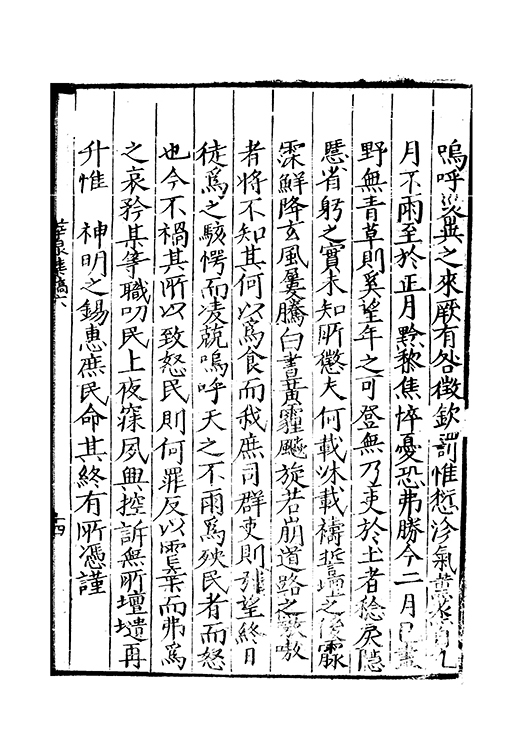 嗚呼災異之來厥有咎徵欽罰惟愆沴氣薰蒸自九
月不雨至於正月黔黎焦悴憂恐弗勝今二月已盡
野無青草則奚望年之可登無乃吏於土者稔戾隱
慝省躬之實未知所懲夫何載沐載禱誓壇之後霢
霂鮮降玄風屢騰白晝黃霾飈旋若崩道路之嗷嗷
者將不知其何以爲食而我庶司群吏則弛望終日
徒爲之駭愕而凌兢嗚呼天之不雨爲殃民者而怒
也今不禍其所以致怒民則何罪反以罹棄而弗爲
之哀矜某等職叨民上夜寐夙興控訴無所壇壝再
升惟 神明之錫惠庶民命其終有所憑謹
華泉集稿六